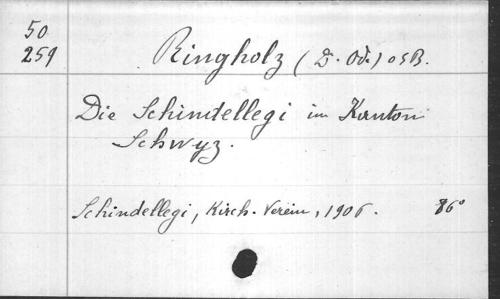 50
259
Ringholz (D. Od.) OSB.
Die Schindellegi im Kanton
Schwyz.
Schindellegi, Kirch. Verein, 1906. 86°